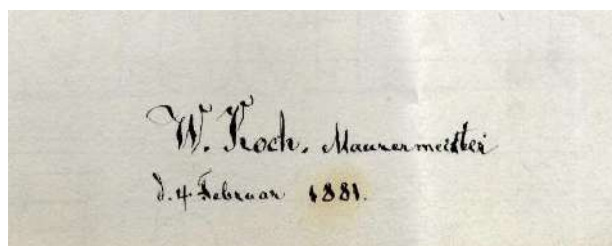 W. Koch, Maurermeister
d. 4 Februar 1881.